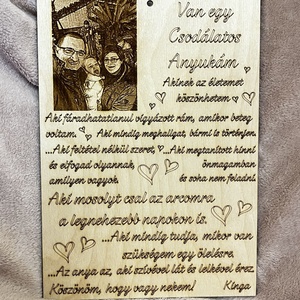 Van egy
Csodálatos
Anyukám
Akinek az életemet
köszönhetem.
Aki fáradhatatlanul vigyázott rám, amikor beteg
voltam. Aki mindig meghallgat, bármi is történjen.
...Aki feltétel nélkül szeret, ...Aki megtanított hinni
és elfogad olyannak, önmagamban
amilyen vagyok. és soha nem feladni.
Aki mosolyt csal az arcomra
a legnehezebb napokon is.
...Aki mindig tudja, mikor van
szükségem egy ölelésre.
...Az anya az, aki szívével lát és lelkével érez.
Köszönöm, hogy vagy nekem! Kinga